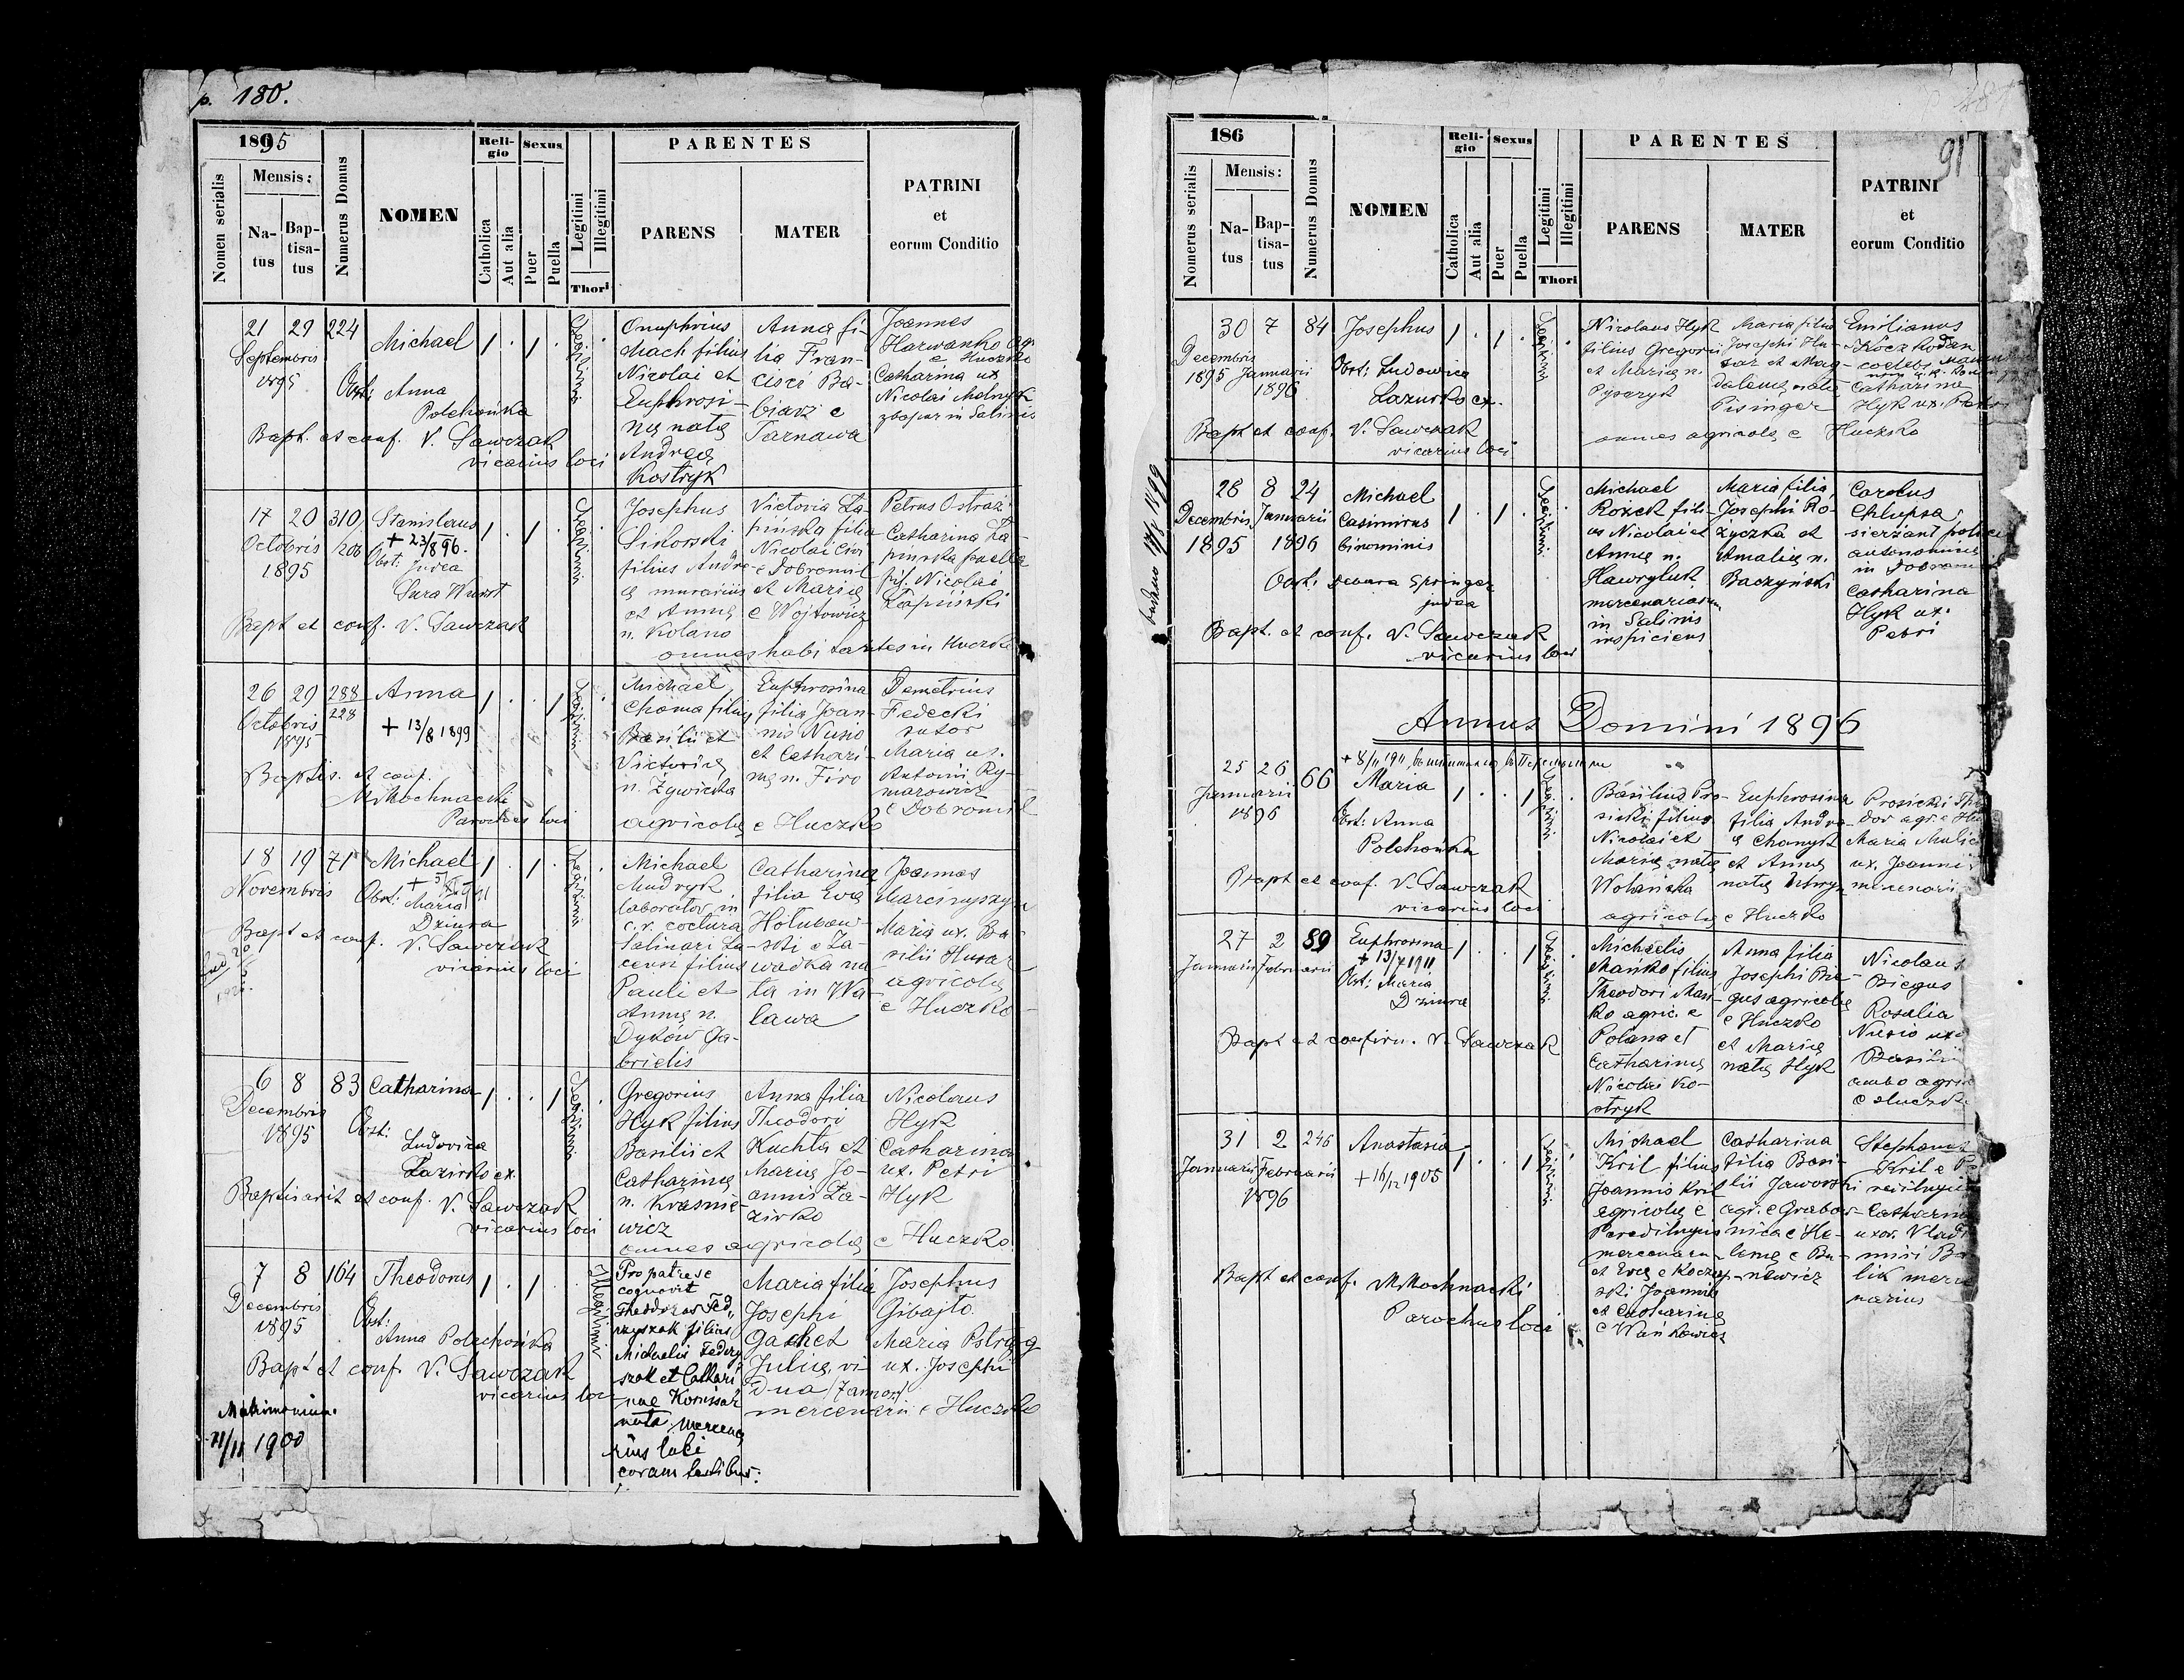 p. 180.
1895
Nomen serialis
Mensis:
Na-
tus
Bap-
tisa-
tus
Numerus Domus
NOMEN
Reli-
gio
Catholica
Aut alia
Sexus
Puer
Puella
Legitimi
Illegitimi
Thori
PARENTES
PARENS
MATER
PATRINI
et
eorum Conditio
21 29 224
Septembris
1895
Michael
Obst: Anna
Polchońka
Bapt. et conf. V. Sawczak
vicarius loci
Legitimi
Onuphrius
Mach filius
Nicolai et
Euphrosi-
nę natę
Andreę
Kostryk
Anna fi-
lia Fran-
cisci Ba-
biarz e
Tarnawa
Joannes
Harwanko agr.
e Huczko
Catharina ux
Nicolai Melnyk
in Salinis
17 20 310
208
Octobris
1895
Stanislaus
+ 23/8 96.
Obst: Judea
Sura Wurst
Bapt et conf. V. Sawczak
Legitimi
Josephus
Sikorski
filius Andre-
ę murarius
et Annę
n. Kolano
Victoria Ła-
pińska filia
Nicolai Civi
e Dobromil
et Marię
e Wojtowicz
Petrus Ostraż
Catharina Ła-
pińska puella
fil. Nicolai
Łapiński
omnes habitantes in Huczko
26 29 288
228
Octobris
1895
Anna
+ 13/8 1899
Baptis. et conf.
M. Mochnacki
Parochus loci
Legitimi
Michael
Choma filius
Basilii et
Victorię
n. Żywicka
Euphrosina
filia Joan-
nis Nusio
et Cathari-
nę n. Firo
Demetrius
Fedecki
sutor
Maria ux.
Antonii Ry-
marowicz
e Dobromil
agricolę e Huczko
18 19 71
Novembris
Michael
Obst: Maria
Dziura
Bapt et conf. V. Sawczak
vicarius loci
Legitimi
Michael
Mudryk
laborator in
c.r. coctura
Salinari La-
censi filius
Pauli et
Annę n.
Dyków Ga-
brielis
Catharina
filia Evę
Hołubow-
ski e Ła-
wadka na
ta in Wa-
lawa
Joannes
Marcinyszyn
Maria ux. Ba-
silii Husar
agricolę
e Huczko
6 8 83
Decembris
1895
Catharina
Obst:
Ludovica
Łazirko ex.
Baptisavit et conf. V. Sawczak
vicarius loci
Legitimi
Gregorius
Hyk filius
Basilii et
Catharinę
n. Krasnie-
wicz
Anna filia
Theodori
Kuchta et
Marię Jo-
annis Ła-
zirko
Nicolaus
Hyk
Catharina
ux. Petri
Hyk
omnes agricolę e Huczko.
7 8 164
Decembris
1895
Theodorus
Obst:
Anna Polechońka
Bapt et conf. V. Sawczak
vicarius loci
Matrimonium.
21/11 1900
Illegitimi
Pro patre se
cognovit
Theodorus Fed-
ryszak filius
Michaelis Fedry
szak et Cathari
nae Kornissar
nata, mercena
rius loci
coram testibus.
Maria filia
Josephi
Gachet
Julię vi
dua
mercenarii e Huczko
Josephus
Gibajto
Maria Pstrąg
ux. Josephi
91
186
Nomerus serialis
Mensis:
Na-
tus
Bap-
tisa-
tus
Numerus Domus
NOMEN
Reli-
gio
Catholica
Aut alia
Sexus
Puer
Puella
Legitimi
Illegitimi
Thori
PARENTES
PARENS
MATER
PATRINI
et
eorum Conditio
30 7 84
Decembris
1895 Januarii
1896
Josephus
Obst: Ludowica
Lazurko ex.
Bapt et conf. V. Sawczak
vicarius loci
Legitimi
Nicolaus Hyk
filius Gregorii
et Marię n.
Pysaryk
Maria filia
Josephi Hu-
sar et Mag-
dalenę natę
Pisinger
Emilianus
Koczkodan
Catharina
Hyk ux. Petri
omnes agricolę e Huczko
28 8 24
Decembris Januarii
1895 1896
Michael
Casimirus
binominis
Obst: Debora Springer
judea
Bapt. et conf. V. Sawczak
vicarius loci
Legitimi
Michael
Rożek fili-
us Nicolai et
Annę n.
Hawryluk
mercenariorum
in Salinis
inspiciens
Maria filia
Josephi Ro-
życzka et
Amalię n.
Baczyński
Carolus
Chlupsa
sierżant
autonomiae
in Dobromil
Catharina
Hyk ux.
Petri
Annus Domini 1896
25 26 66
Januarii
1896
Maria
Obst: Anna
Polchońka
Bapt et conf. V. Sawczak
vicarius loci
Legitimi
Basilius Pro-
sicki filius
Nicolai et
Marię natę
Wolańska
Euphrosina
filia Andre-
ę Chanyk
et Annę
natę
Prosicki
dor agr. e
Maria
ux. Joannis
mercenarii
agricolę e Huczko
27 2 89
Januarii Februarii
Euphrosina
Obst: Maria
Dziura
Bapt et confirm. V. Sawczak
Legitimi
Michaelis
Mańko filius
Theodori Mań-
ko agric. e
Polana et
Catharinę
Nicolai Ko-
stryk
Anna filia
Josephi Bie-
gus agricolę
e Huczko
et Marię
natę Hyk
Nicolaus
Biegus
Rosalia
Nusio
Basilii
ambo
e Huczko
31 2 246
Januarii Februarii
1896
Anastasia
+ 16/12 1905
Bapt et conf. M. Mochnacki
Parochus loci
Legitimi
Michael
Kril filius
Joannis Kril
agricolę e
Peredilnycia
mercenarii
et Evę e Koczy-
ski Joannis
et Catharinę
e Wańkowicz
Catharina
filia Basi-
lii Jaworski
agr. e Grabow-
nica e He-
lenę e Ba-
newicz
Stephanus
Kril e
Catharina
uxor. Vladi
miri
lik merce
narius